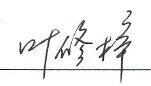 叶修梓